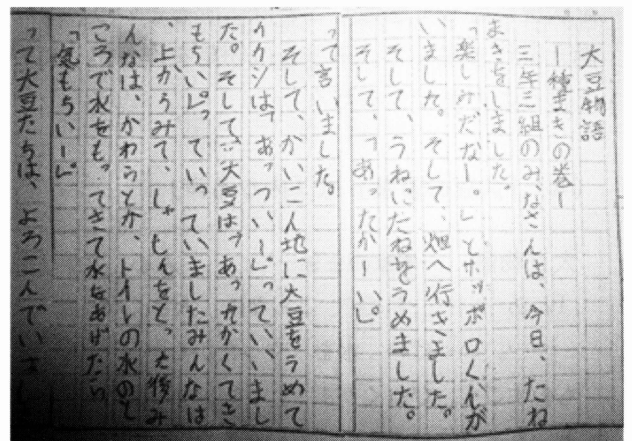 大豆物語
ー種まきの巻ー
三年三組のみなさんは、今日、たね
まきをしました。
「楽しみだなー。」とホッポロくんが
いました。そして、畑へ行きました。
そして、うねにたねをうめました。
そして、「あったかーい」。
って言いました。
そして、かいこん地に大豆をうめて
「あっついー」っていいまし
た。そして大豆は「あったかくてき
もちい」っていっていましたみんなは
、上からみて、しゃしんをとった後み
んなは、かわうとか、トイレの水のと
ころで水をもってきて水をあげたら
「気もちいー」
って大豆たちは、よろこんでいまし